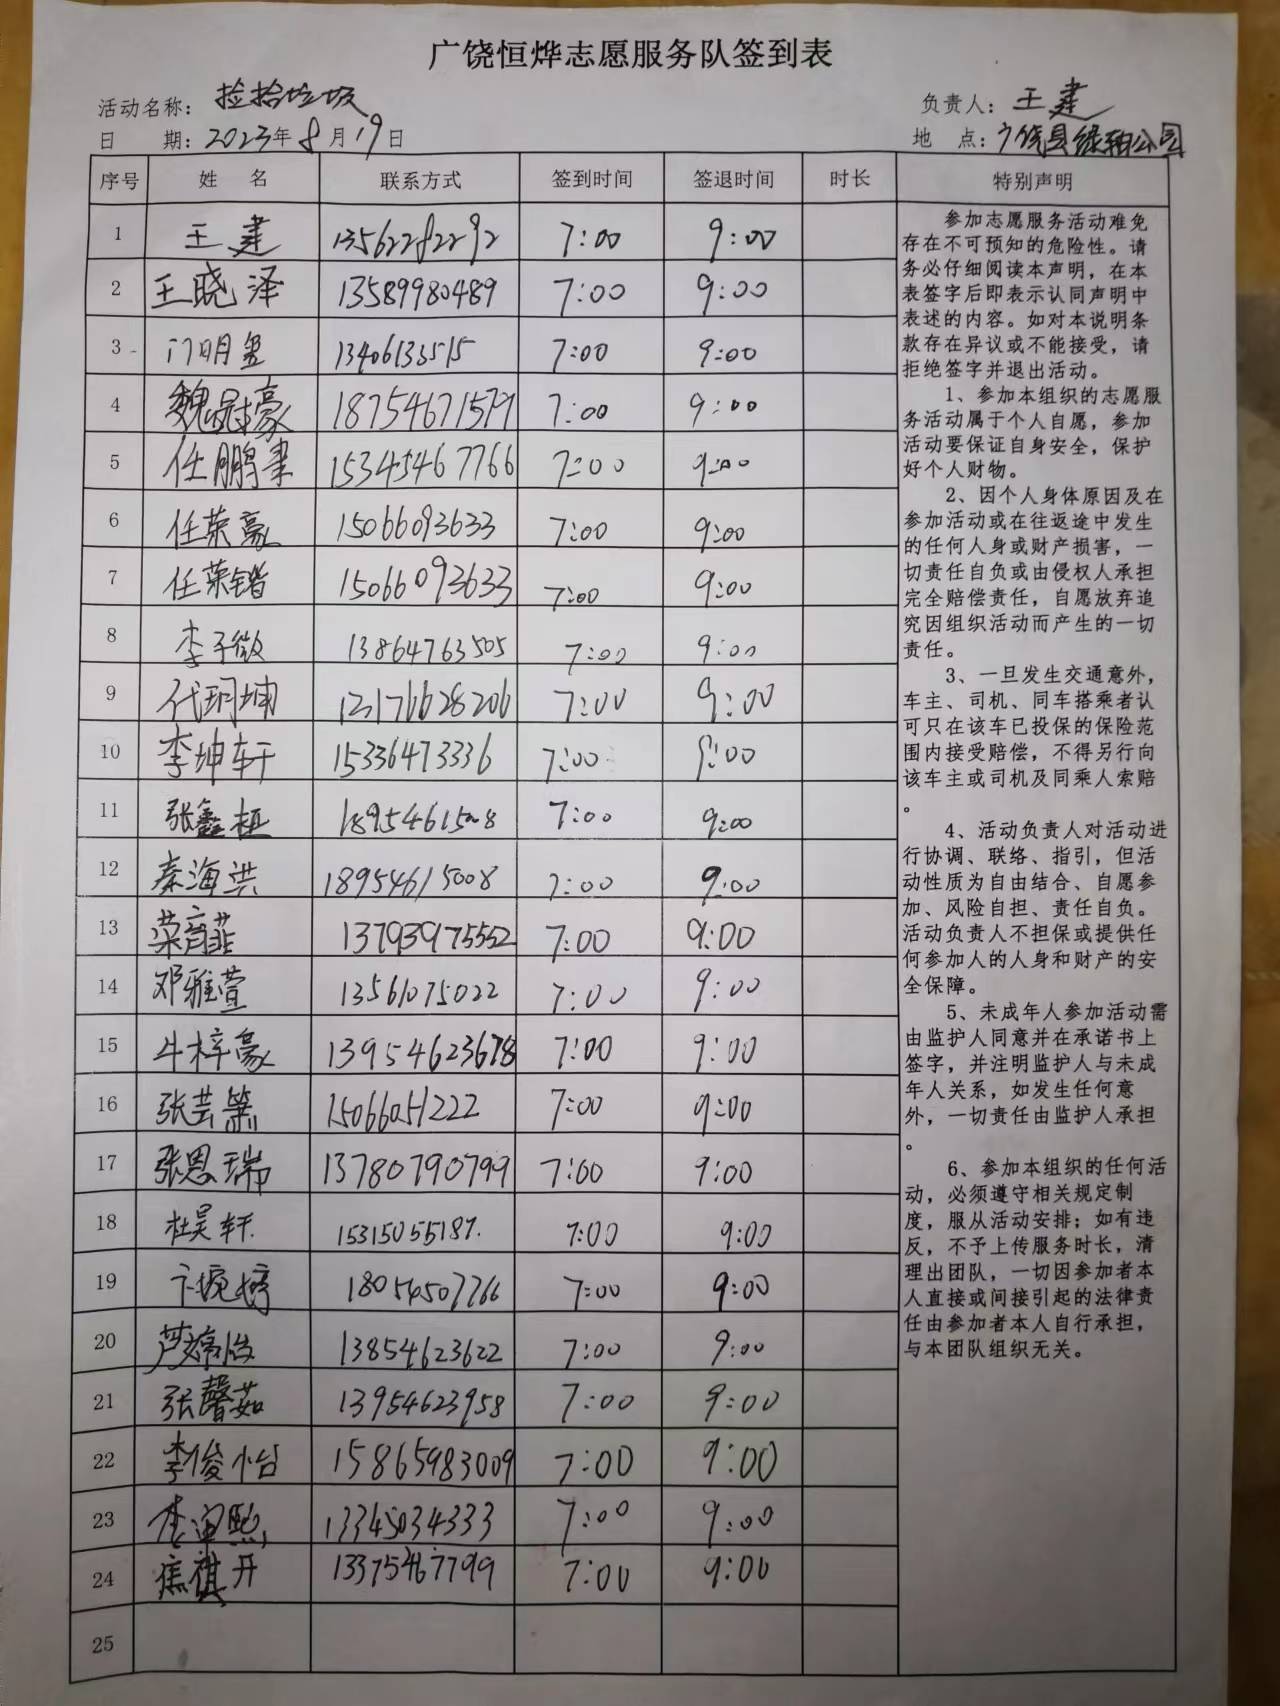 广饶恒烨志愿服务队签到表
活动名称：捡拾垃圾 负责人：王建
日 期：2023年8月19日 地 点：广饶县绿轴公园
序号 姓 名 联系方式 签到时间 签退时间 时长 特别声明
1 王建 13562282292 7:00 9:00
2 王晓泽 13589980489 7:00 9:00
3 门明 13406133515 7:00 9:00
4 魏 豪 18754671579 7:00 9:00
5 任鹏 15345467766 7:00 9:00
6 任荣豪 15066093633 7:00 9:00
7 任荣锴 15066093633 7:00 9:00
8 李子微 13864763505 7:00 9:00
9 代玥坤 7:00 9:00
10 李坤轩 15336473336 7:00 9:00
11 张鑫 18954615008 7:00 9:00
12 秦海洪 18954615008 7:00 9:00
13 7:00 9:00
14 邓雅萱 13561075022 7:00 9:00
15 牛梓豪 13954623678 7:00 9:00
16 张芸 15066051222 7:00 9:00
17 张恩瑞 13780790799 7:00 9:00
18 杜昊轩 15315055187. 7:00 9:00
19 卞婷 18054507766 7:00 9:00
20 芦 13854623622 7:00 9:00
21 张馨茹 13954623958 7:00 9:00
22 李俊怡 15865983009 7:00 9:00
23 李 熙 13345034333 7:00 9:00
24 焦祺开 13375467799 7:00 9:00
25
参加志愿服务活动难免
存在不可预知的危险性。请
务必仔细阅读本声明，在本
表签字后即表示认同声明中
表述的内容。如对本说明条
款存在异议或不能接受，请
拒绝签字并退出活动。
1、参加本组织的志愿服
务活动属于个人自愿，参加
活动要保证自身安全，保护
好个人财物。
2、因个人身体原因及在
参加活动或在往返途中发生
的任何人身或财产损害，一
切责任自负或由侵权人承担
完全赔偿责任，自愿放弃追
究因组织活动而产生的一切
责任。
3、一旦发生交通意外，
车主、司机、同车搭乘者认
可只在该车已投保的保险范
围内接受赔偿，不得另行向
该车主或司机及同乘人索赔
。
4、活动负责人对活动进
行协调、联络、指引，但活
动性质为自由结合、自愿参
加、风险自担、责任自负。
活动负责人不担保或提供任
何参加人的人身和财产的安
全保障。
5、未成年人参加活动需
由监护人同意并在承诺书上
签字，并注明监护人与未成
年人关系，如发生任何意
外，一切责任由监护人承担
。
6、参加本组织的任何活
动，必须遵守相关规定制
度，服从活动安排；如有违
反，不予上传服务时长，清
理出团队，一切因参加者本
人直接或间接引起的法律责
任由参加者本人自行承担，
与本团队组织无关。